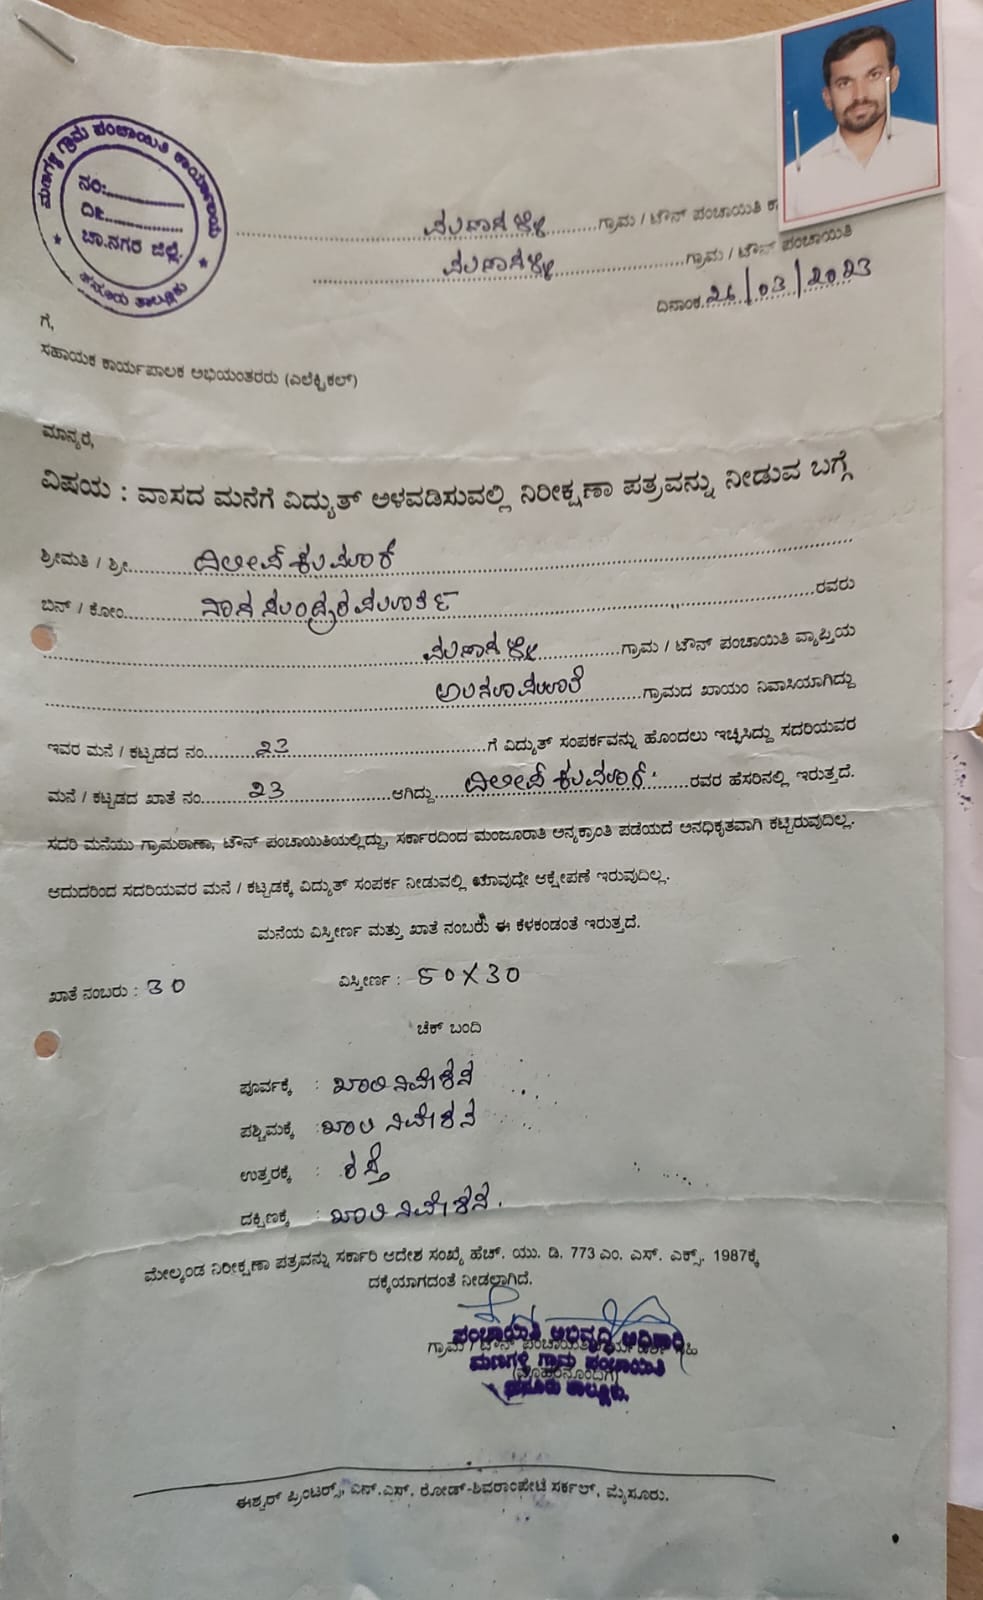 ಮಣಗಳ್ಳಿ ಗ್ರಾಮ ಪಂಚಾಯಿತಿ ಕಾರ್ಯಾಲಯ
ನಂ:
ದಿ:
ಚಾ.ನಗರ ಜಿಲ್ಲೆ.
ಹನೂರು ತಾಲ್ಲೂಕು
ಮಣಗಳ್ಳಿ ಗ್ರಾಮ / ಟೌನ್ ಪಂಚಾಯಿತಿ
ಮಣಗಳ್ಳಿ ಗ್ರಾಮ / ಟೌನ್ ಪಂಚಾಯಿತಿ
ದಿನಾಂಕ 26/03/2023
ಗೆ,
ಸಹಾಯಕ ಕಾರ್ಯಪಾಲಕ ಅಭಿಯಂತರರು (ಎಲೆಕ್ಟ್ರಿಕಲ್)
ಮಾನ್ಯರೆ,
ವಿಷಯ : ವಾಸದ ಮನೆಗೆ ವಿದ್ಯುತ್ ಅಳವಡಿಸುವಲ್ಲಿ ನಿರೀಕ್ಷಣಾ ಪತ್ರವನ್ನು ನೀಡುವ ಬಗ್ಗೆ
ಶ್ರೀಮತಿ / ಶ್ರೀ ದಿಲೀಪ್ ಕುಮಾರ್
ಬಿನ್ / ಕೋಂ ರವರು
ಮಣಗಳ್ಳಿ ಗ್ರಾಮ / ಟೌನ್ ಪಂಚಾಯಿತಿ ವ್ಯಾಪ್ತಿಯ
ಗ್ರಾಮದ ಖಾಯಂ ನಿವಾಸಿಯಾಗಿದ್ದು
ಇವರ ಮನೆ / ಕಟ್ಟಡದ ನಂ 23 ಗೆ ವಿದ್ಯುತ್ ಸಂಪರ್ಕವನ್ನು ಹೊಂದಲು ಇಚ್ಛಿಸಿದ್ದು ಸದರಿಯವರ
ಮನೆ / ಕಟ್ಟಡದ ಖಾತೆ ನಂ 23 ಆಗಿದ್ದು ದಿಲೀಪ್ ಕುಮಾರ್ ರವರ ಹೆಸರಿನಲ್ಲಿ ಇರುತ್ತದೆ.
ಸದರಿ ಮನೆಯು ಗ್ರಾಮಠಾಣಾ, ಟೌನ್ ಪಂಚಾಯಿತಿಯಲ್ಲಿದ್ದು, ಸರ್ಕಾರದಿಂದ ಮಂಜೂರಾತಿ ಅನ್ಯಕ್ರಾಂತಿ ಪಡೆಯದೆ ಅನಧಿಕೃತವಾಗಿ ಕಟ್ಟಿರುವುದಿಲ್ಲ.
ಆದುದರಿಂದ ಸದರಿಯವರ ಮನೆ / ಕಟ್ಟಡಕ್ಕೆ ವಿದ್ಯುತ್ ಸಂಪರ್ಕ ನೀಡುವಲ್ಲಿ ಯಾವುದೇ ಆಕ್ಷೇಪಣೆ ಇರುವುದಿಲ್ಲ.
ಮನೆಯ ವಿಸ್ತೀರ್ಣ ಮತ್ತು ಖಾತೆ ನಂಬರು ಈ ಕೆಳಕಂಡಂತೆ ಇರುತ್ತದೆ.
ಖಾತೆ ನಂಬರು : 30 ವಿಸ್ತೀರ್ಣ : 50X30
ಚೆಕ್ ಬಂದಿ
ಪೂರ್ವಕ್ಕೆ : ಖಾಲಿ ನಿವೇಶನ
ಪಶ್ಚಿಮಕ್ಕೆ : ಖಾಲಿ ನಿವೇಶನ
ಉತ್ತರಕ್ಕೆ : ರಸ್ತೆ
ದಕ್ಷಿಣಕ್ಕೆ : ಖಾಲಿ ನಿವೇಶನ.
ಮೇಲ್ಕಂಡ ನಿರೀಕ್ಷಣಾ ಪತ್ರವನ್ನು ಸರ್ಕಾರಿ ಆದೇಶ ಸಂಖ್ಯೆ ಹೆಚ್. ಯು. ಡಿ. 773 ಎಂ. ಎಸ್. ಎಕ್ಸ್. 1987ಕ್ಕೆ
ದಕ್ಕೆಯಾಗದಂತೆ ನೀಡಲಾಗಿದೆ.
ಪಂಚಾಯಿತಿ ಅಭಿವೃದ್ಧಿ ಅಧಿಕಾರಿ
ಮಣಗಳ್ಳಿ ಗ್ರಾಮ ಪಂಚಾಯಿತಿ
ಹನೂರು ತಾಲ್ಲೂಕು.
ಈಶ್ವರ್ ಪ್ರಿಂಟರ್ಸ್, ಎನ್.ಎಸ್. ರೋಡ್-ಶಿವರಾಂಪೇಟೆ ಸರ್ಕಲ್, ಮೈಸೂರು.